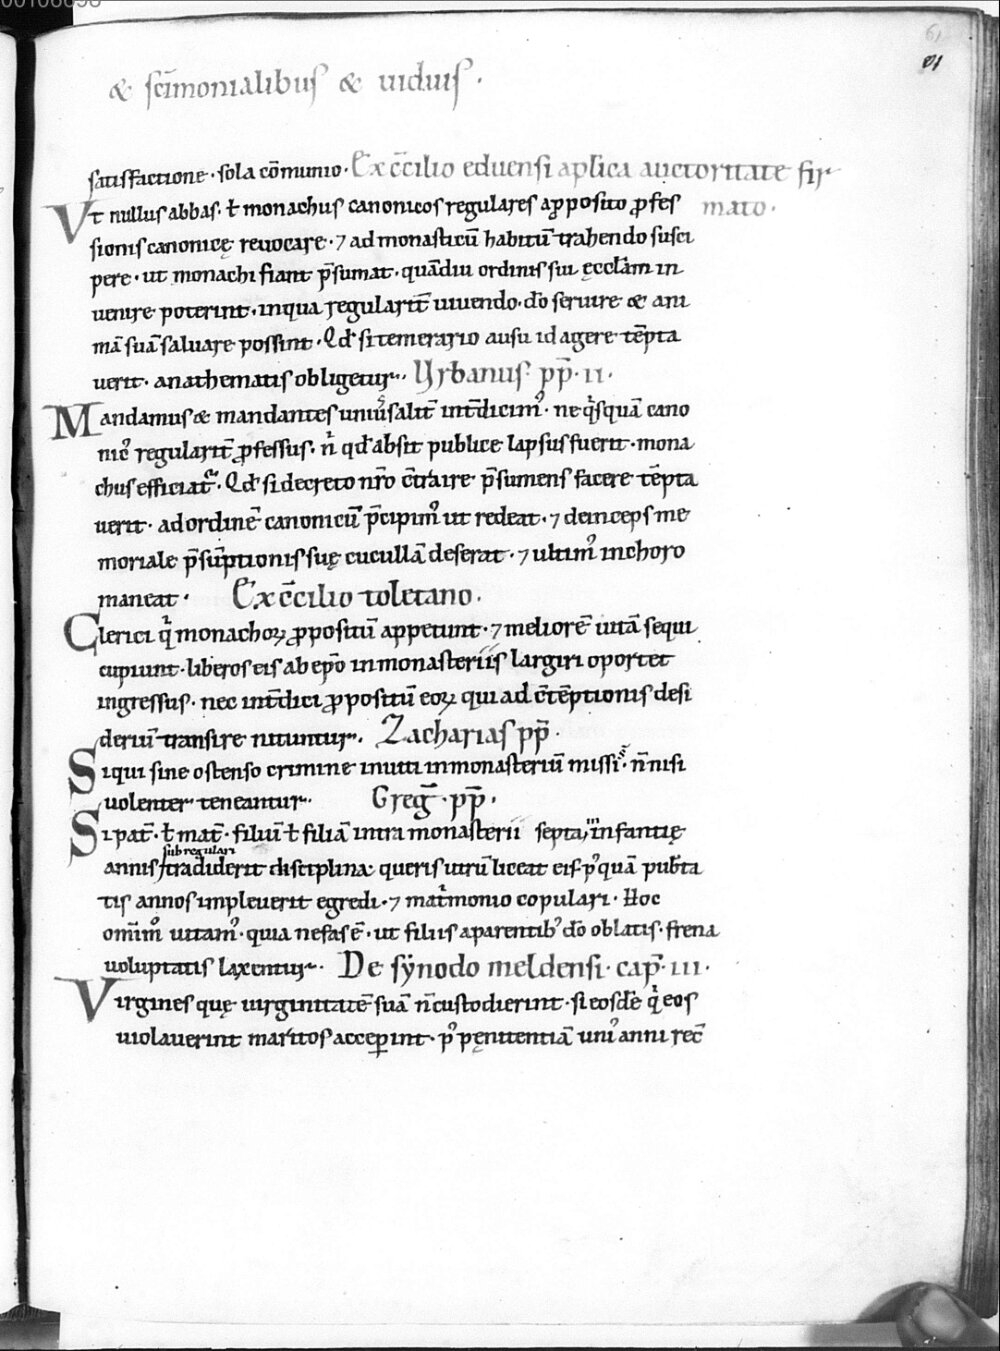 00106698
61
61
& sc̄imonialibus & uiduis.
satisfactione. sola cōmunio. Ex c̄cilio eduensi aplica auctoritate fir
Vt nullus abbas. ł monachus canonicos regulares a ꝓposito ꝓfes mato.
sionis canonicę reuocare. ⁊ ad monasticū habitū trahendo susci
pere. ut monachi fiant p̄sumat. quādiu ordinis sui ęccl̄am in
uenire poterint. in qua regularit̄ uiuendo. dō seruire & ani
mā suā saluare possint. Qd̄ si temerario ausu id agere tēpta
uerit. anathematis obligetur. Vrbanus pp̄. II.
Mandamus & mandantes uniūsalit̄ int̄dicimꝰ. ne q̄squā cano
nicꝰ regularit̄ ꝓfessus. n̄ qd̄ absit publice lapsus fuerit. mona
chus efficiat᷑. Qd̄ si decreto nr̄o c̄traire p̄sumens facere tēpta
uerit. ad ordinē canonicū p̄cipimꝰ ut redeat. ⁊ deinceps me
moriale p̄sūptionis suę cucullā deferat. ⁊ ultimꝰ in choro
maneat. Ex c̄cilio toletano.
Clerici q̄ monachoꝝ ꝓpositū appetunt. ⁊ meliorē uitā sequi
cupiunt. liberos eis ab epō in monasteriis largiri oportet
ingressus. nec int̄dici ꝓpositū eoꝝ qui ad c̄tēptionis desi
deriū transire nituntur. Zacharias pp̄.
Siqui sine ostenso crimine inuiti in monasteriū missi. n̄ nisi
uolenter teneantur. Greḡ. pp̄.
Si pat̄. ł mat̄. filiū ł filiā intra monasterii septa, in infantię
sub regulari
annis tradiderit disciplina queris utrū liceat eis pꝰquā pub̄ta
tis annos impleuerit egredi. ⁊ mat̄monio copulari. Hoc
om̄imꝰ uitamꝰ. quia nefas ē. ut filiis a parentibꝰ dō oblatis. frena
uoluptatis laxentur. De synodo meldensi. cap̄. III.
Virgines quę uirginitatē suā n̄ custodierint. si eosdē q̄ eos
uiolauerint maritos acceperint. pꝰ pęnitentiā uniꝰ anni rec̄